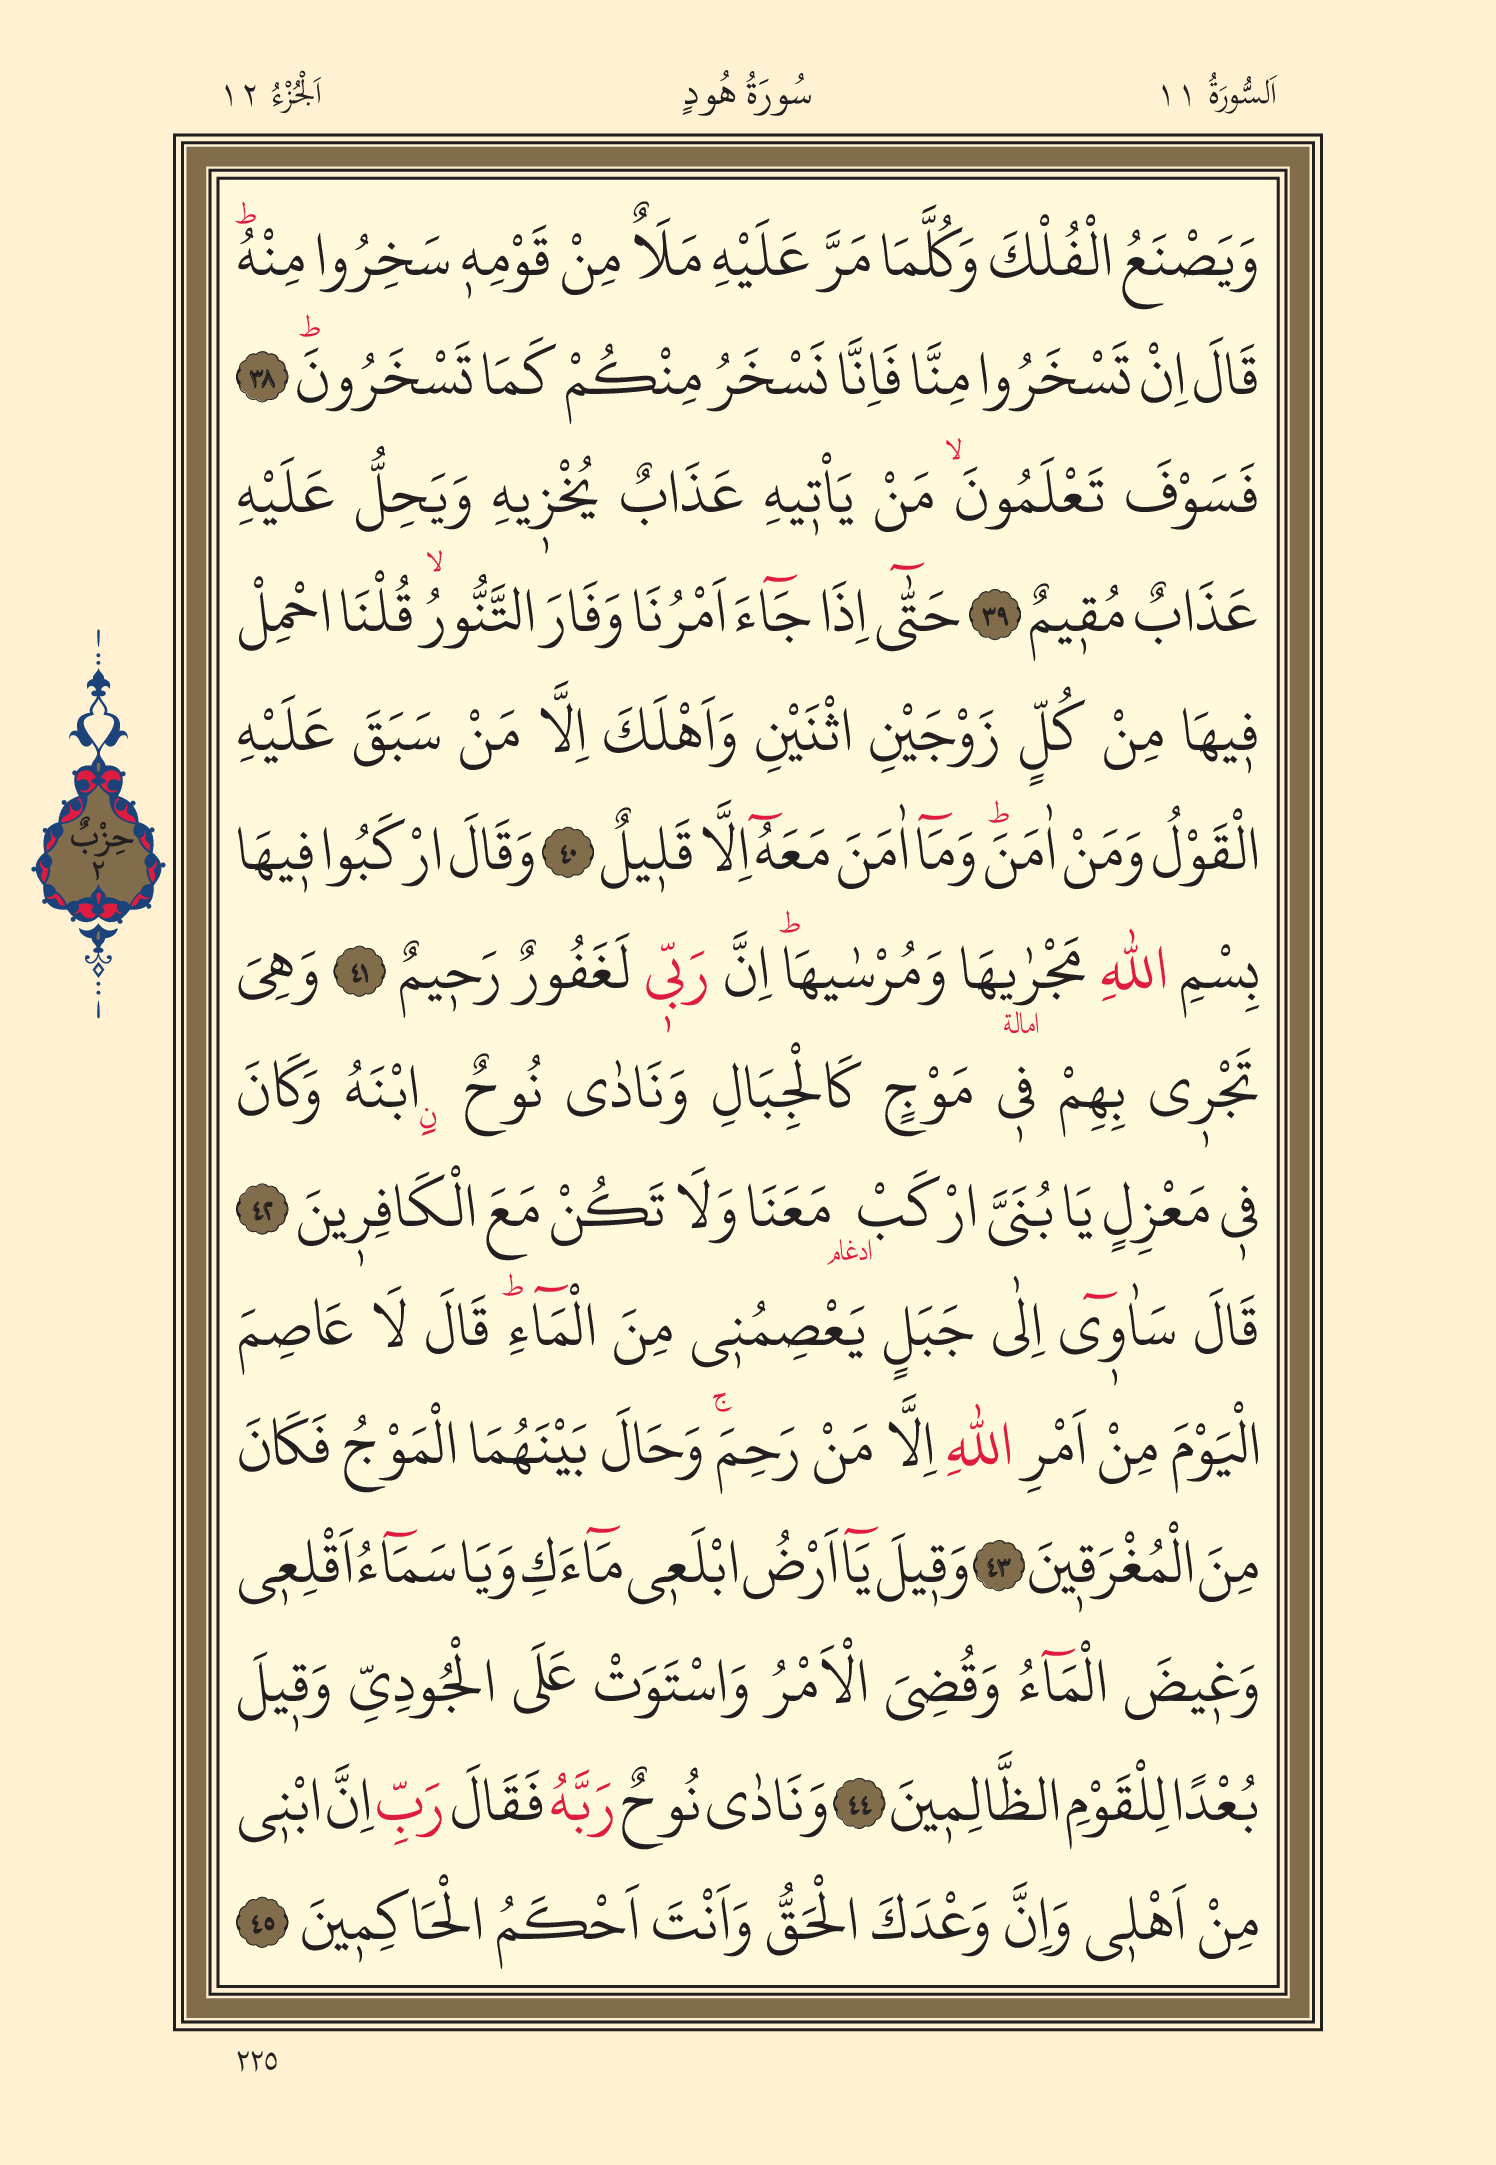 اَلسُّورَةُ ١١
سُورَةُ هُودٍ
اَلْجُزْءُ ١٢
وَيَصْنَعُ الْفُلْكَ وَكُلَّمَا مَرَّ عَلَيْهِ مَلَاٌ مِنْ قَوْمِهٖ سَخِرُوا مِنْهُۜ ط
قَالَ اِنْ تَسْخَرُوا مِنَّا فَاِنَّا نَسْخَرُ مِنْكُمْ كَمَا تَسْخَرُونَ ط ٣٨
فَسَوْفَ تَعْلَمُونَ لا مَنْ يَاْتٖيهِ عَذَابٌ يُخْزٖيهِ وَيَحِلُّ عَلَيْهِ
عَذَابٌ مُقٖيمٌ ٣٩ حَتّٰٓى اِذَا جَٓاءَ اَمْرُنَا وَفَارَ التَّنُّورُ لا قُلْنَا احْمِلْ
فٖيهَا مِنْ كُلٍّ زَوْجَيْنِ اثْنَيْنِ وَاَهْلَكَ اِلَّا مَنْ سَبَقَ عَلَيْهِ
الْقَوْلُ وَمَنْ اٰمَنَ ط وَمَٓا اٰمَنَ مَعَهُٓ اِلَّا قَلٖيلٌ ٤٠ وَقَالَ ارْكَبُوا فٖيهَا
بِسْمِ اللّٰهِ مَجْرٰۭيهَا وَمُرْسٰيهَا ط اِنَّ رَبّٖى لَغَفُورٌ رَحٖيمٌ ٤١ وَهِىَ
امالة
تَجْرٖى بِهِمْ فٖى مَوْجٍ كَالْجِبَالِ وَنَادٰى نُوحٌ نِ ابْنَهُ وَكَانَ
فٖى مَعْزِلٍ يَا بُنَىَّ ارْكَبْ مَعَنَا وَلَا تَكُنْ مَعَ الْكَافِرٖينَ ٤٢
ادغام
قَالَ سَاٰوٖٓى اِلٰى جَبَلٍ يَعْصِمُنٖى مِنَ الْمَٓاءِ ط قَالَ لَا عَاصِمَ
الْيَوْمَ مِنْ اَمْرِ اللّٰهِ اِلَّا مَنْ رَحِمَ ج وَحَالَ بَيْنَهُمَا الْمَوْجُ فَكَانَ
مِنَ الْمُغْرَقٖينَ ٤٣ وَقٖيلَ يَٓا اَرْضُ ابْلَعٖى مَٓاءَكِ وَيَا سَمَٓاءُ اَقْلِعٖى
وَغٖيضَ الْمَٓاءُ وَقُضِىَ الْاَمْرُ وَاسْتَوَتْ عَلَى الْجُودِىِّ وَقٖيلَ
بُعْدًا لِلْقَوْمِ الظَّالِمٖينَ ٤٤ وَنَادٰى نُوحٌ رَبَّهُ فَقَالَ رَبِّ اِنَّ ابْنٖى
مِنْ اَهْلٖى وَاِنَّ وَعْدَكَ الْحَقُّ وَاَنْتَ اَحْكَمُ الْحَاكِمٖينَ ٤٥
حِزْبٌ
٢
٢٢٥